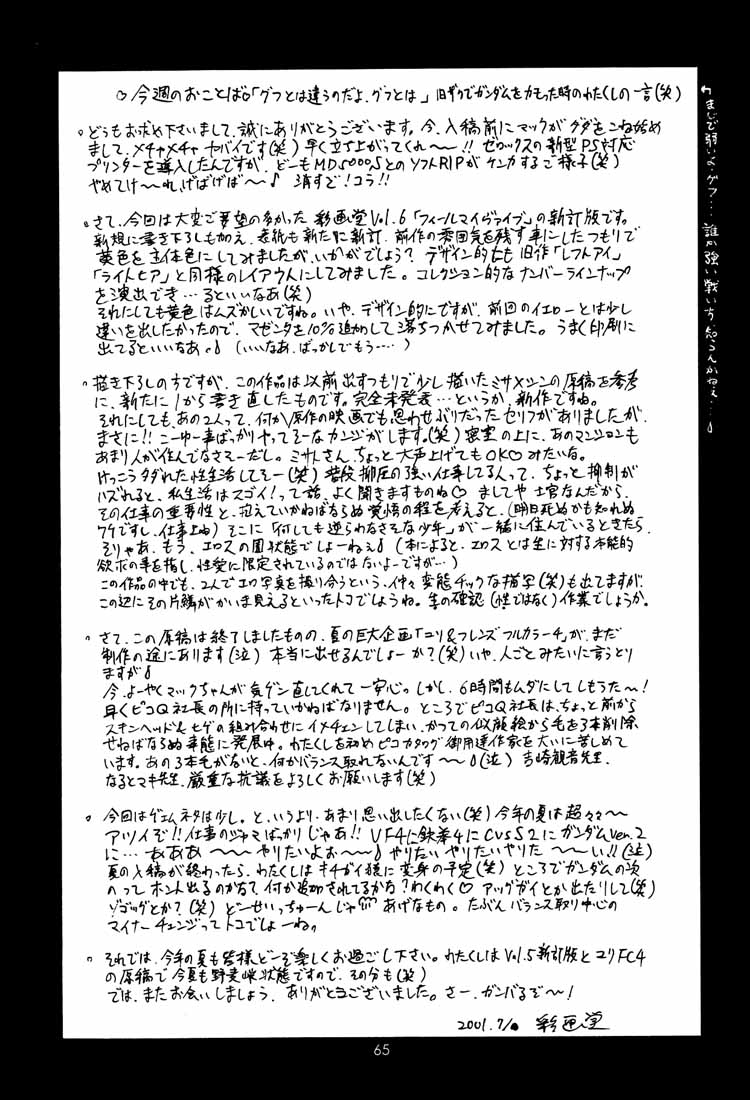 ♡今週のおことば♡「グフとは違うのだよ、グフとは」旧ザクでガンダムをカモった時のわたくしの一言(笑)
どうもお求め下さいまして、誠にありがとうございます。今、入稿前にマックがグダをこね始め
まして、メチャメチャヤバイです(笑)早く立ち上がってくれ〜〜!!ゼロックスの新型PS対応
プリンターを導入したんですが、どーもMD5000SとのソフトRIPがケンカするご様子(笑)
やめてけ〜れ、げばげば〜♪ 消すど!コラ!!
さて、今回は大変ご要望の多かった 彩画堂Vol.6「フィールマイヴァイブ」の新訂版です。
新規に書き下ろしも加え、表紙も新たに新訂、前作の雰囲気を残す事にしたつもりで
黄色を主体色にしてみましたが、いかがでしょう?デザイン的にも旧作「レフトアイ」
「ライトヒア」と同様のレイアウトにしてみました。コレクション的なナンバーラインナップ
を演出でき…るといいなあ(笑)
それにしても黄色はムズかしいですね。いや、デザイン的にですが、前回のイエローとは少し
違いを出したかったので、マゼンタを10%追加して落ちつかせてみました。うまく印刷に
出てるといいなあ。♪ (いいなあ、ばっかしでもう……)
描き下ろしのちですが、この作品は以前出すつもりで少し描いたミサ×シンの原稿を参考
に、新たに1から書き直したものです。完全未発表…というか、新作ですね。
それにしても、あの2人って、何か原作の映画でも思わせぶりだったセリフがありましたが、
まさに!!こーゆー事ばっかりヤってそーなカンジがします。(笑)密室の上に、あのマンションも
あまり人が住んでなさそーだし。ミサトさん、ちょっと大声上げてもOK♡みたいな。
けっこうタダれた性生活してそー(笑)普段抑圧の強い仕事してる人って、ちょっと抑制が
ハズれると、私生活はスゴイ!って話、よく聞きますものね♡ ましてや士官なんだから、
その仕事の重要性と、控えていかねばならぬ覚悟の程を考えると、(明日死ぬかも知れぬ
ワケですし、仕事上ね)そこに「何しても逆らわなさそな少年」が一緒に住んでいるときたら、
そりゃあ、もう、エロスの園状態でしょーねぇ♪(本によると、エロスとは生に対する本能的
欲求の事を指し、性愛に限定されているのではないよーですが…)
この作品の中でも、2人でエロ写真を撮り合うという、仲々変態チックな描写(笑)も出てますが、
この辺にその片鱗がかいま見えるといったトコでしょうね。生の確認(性ではなく)作業でしょうか。
さて、この原稿は終了しましたものの、夏の巨大企画「ユリ&フレンズフルカラー4」が、まだ
制作の途にあります(泣)本当に出せるんでしょーか?(笑)いや、人ごとみたいに言うとり
ますが♪
今、よーやくマックちゃんが気ゲン直してくれて一安心。しかし、6時間もムダにしてしもうた〜!
早くピコQ社長の所に持っていかねばなりません。ところでピコQ社長は、ちょっと前から
スキンヘッド&ヒゲの組み合わせにイメチェンしてしまい、かつての似顔絵から毛を3本削除
せねばならぬ事態に発展中。わたくしを初めピコカタログ御用達作家を大いに苦しめて
います。あの3本毛がないと、何かバランス取れないんです〜〜♪(泣)吉崎観音先生、
なるとマキ先生、厳重な抗議をよろしくお願いします(笑)
今回はゲェムネタは少し。と、いうより、あまり思い出したくない(笑)今年の夏は超々々〜
アツイぞ!!仕事のジャマばっかりじゃあ!!VF4に鉄拳4にCvsS2にガンダムver.2
に…ああああ〜〜〜やりたいよぉ〜〜♪やりたいやりたいやりた〜〜い!!(泣)
夏の入稿が終わったら、わたくしはキチガイ猿に変身の予定(笑)ところでガンダムの次
のってホント出るのかな?何か追加されてるかな?わくわく♡アッグガイとか出たりして(笑)
ゾゴッグとか?(笑)どーせいっちゅーんじゃ あげなもの。たぶんバランス取り中心の
マイナーチェンジってトコでしょーね。
それでは、今年の夏も皆様どーぞ楽しくお過ごし下さい。わたくしはVol.5新訂版とユリFC4
の原稿で今夏も野麦峠状態ですので、その分も(笑)
では、またお会いしましょう、ありがとうございました。さー、ガンバるぞ〜!
2001.7/ 彩画堂
まじで弱いよ、グフ…誰か強い戦い方知らんかねぇ…♪
65